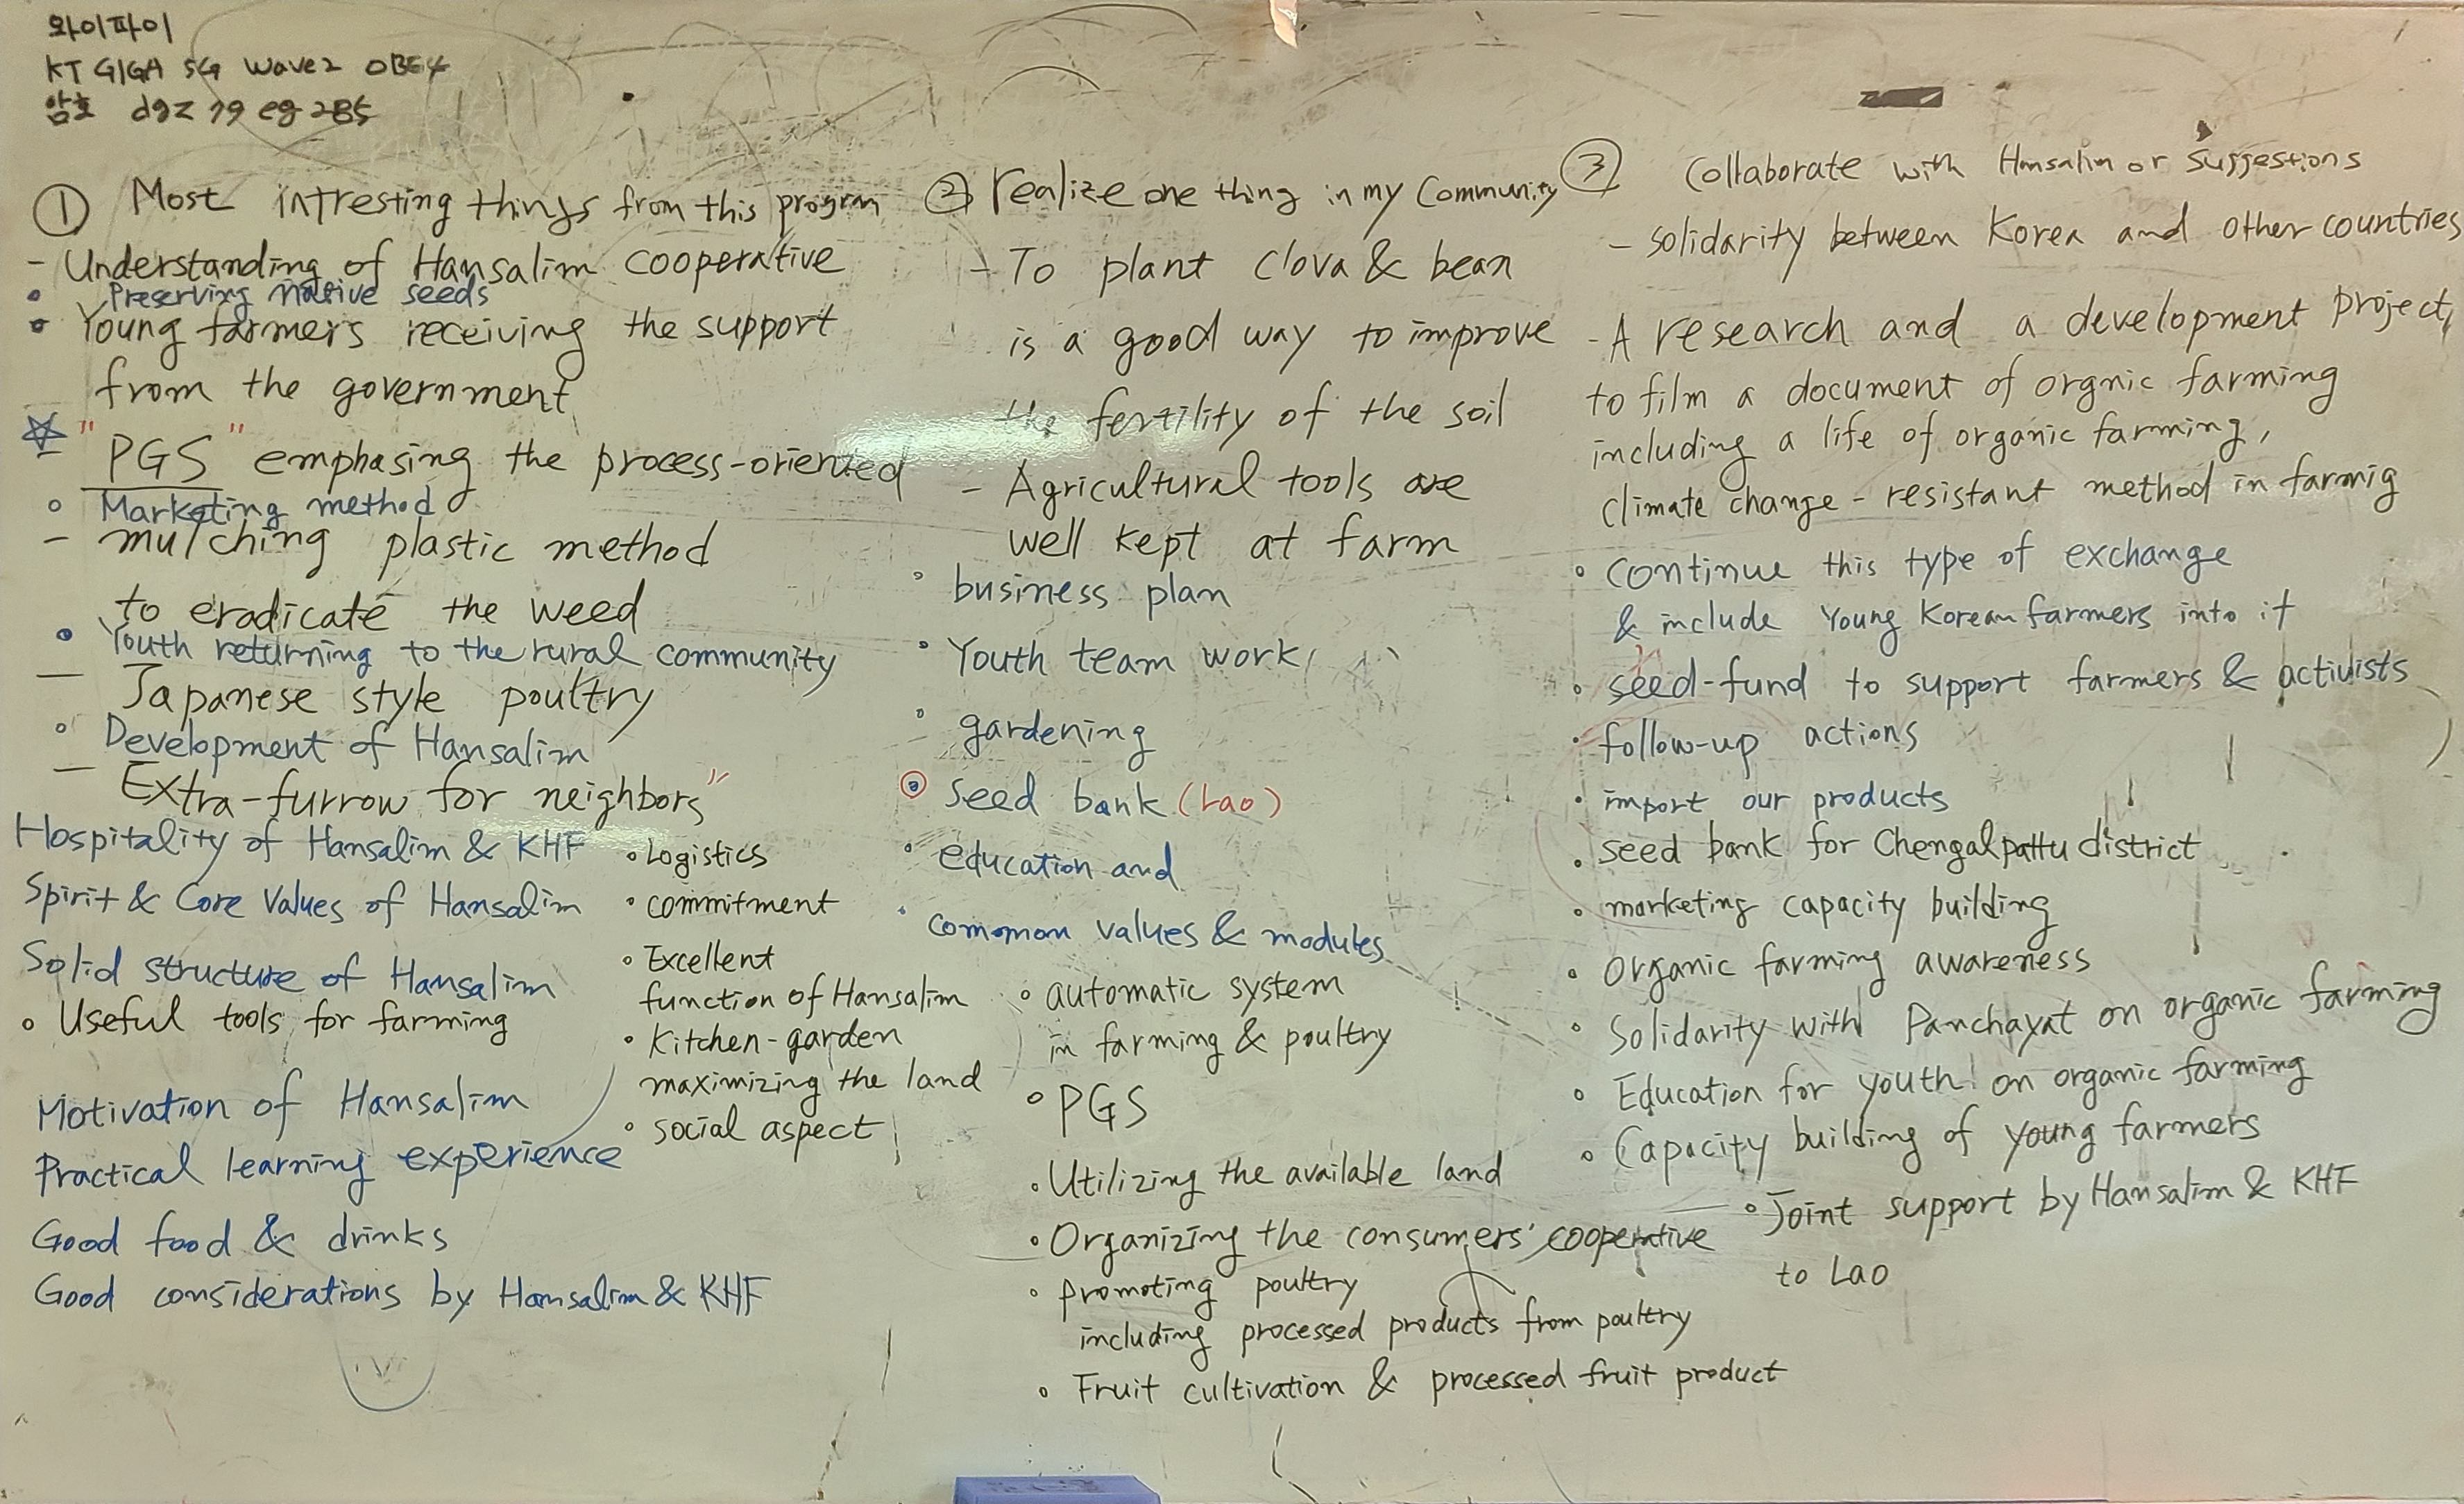 와이파이
KT GIGA 5G Wave2 0BE4
암호
① Most intresting things from this program
- Understanding of Hansalim cooperative
• Preserving native seeds
• Young farmers receiving the support
from the government
☆ - "PGS" emphasing the process-oriented
∘ Marketing method
- mulching plastic method
to eradicate the weed
• Youth returning to the rural community
- Japanese style poultry
∘ Development of Hansalim
- Extra-furrow for neighbors"
Hospitality of Hansalim & KHF
Spirit & Core Values of Hansalim
Solid structure of Hansalim
∘ Useful tools for farming
Motivation of Hansalim
Practical learning experience
Good food & drinks
Good considerations by Hansalim & KHF
• Logistics
• commitment
∘ Excellent
function of Hansalim
• Kitchen-garden
maximizing the land
∘ social aspect
② realize one thing in my Community
- To plant clova & bean
is a good way to improve
the fertility of the soil
- Agricultural tools are
well kept at farm
∘ business plan
∘ Youth team work
∘ gardening
◎ seed bank (Lao)
∘ education and
∘ common values & modules
∘ automatic system
in farming & poultry
∘ PGS
• Utilizing the available land
• Organizing the consumers' cooperative
∘ promoting poultry
including processed products from poultry
∘ Fruit cultivation & processed fruit product
③ Collaborate with Hansalim or suggestions
- solidarity between Korea and other countries
- A research and a development project,
to film a document of orgnic farming
including a life of organic farming,
climate change - resistant method in farmig
∘ continue this type of exchange
& include Young Korean farmers into it
∘ seed-fund to support farmers & activists
• follow-up actions
• import our products
• seed bank for Chengalpattu district
• marketing capacity building
∘ organic farming awareness
∘ Solidarity with Panchayat on organic farming
∘ Education for youth on organic farming
∘ Capacity building of young farmers
∘ Joint support by Hansalim & KHF
to Lao